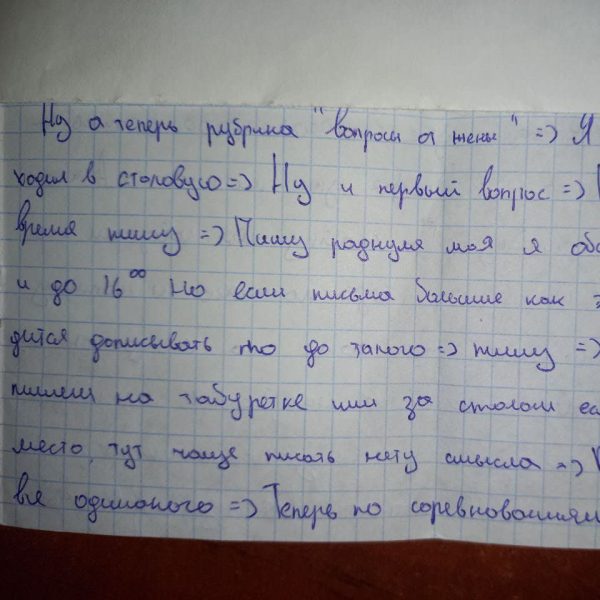 Ну а теперь рубрика "вопросы от жены" => Я
ходил в столовую => Ну и первый вопрос =>
время пишу => Пишу роднуля моя я обо
и до 16⁰⁰ Но если письма большие как
дится дописывать то до такого => пишу =>
пишем на табуретке или за столом ес
место, тут чаще писать нету смысла =>
всё одинаково => Теперь по соревнованиям